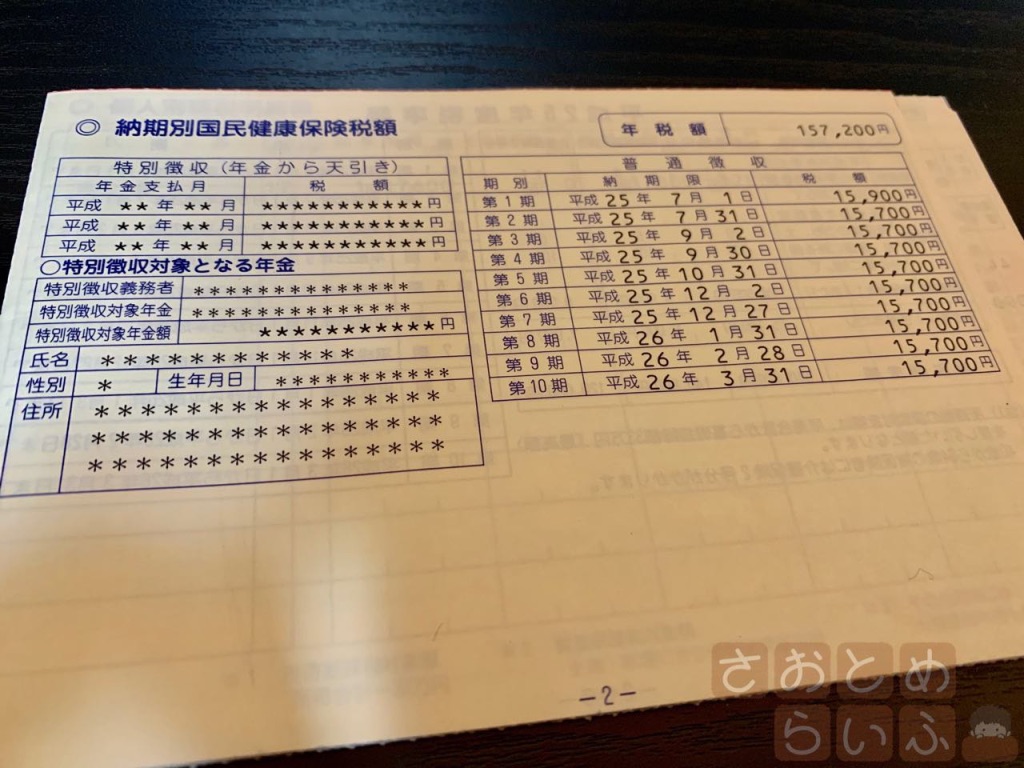 ◎ 納期別国民健康保険税額
年税額 157,200円
特別徴収(年金から天引き)
年金支払月 税額
平成 ** 年 ** 月 ***********円
平成 ** 年 ** 月 ***********円
平成 ** 年 ** 月 ***********円
○特別徴収対象となる年金
特別徴収義務者 **************
特別徴収対象年金 **************
特別徴収対象年金額 ***********円
氏名 ************
性別 * 生年月日 ***********
住所 ****************
****************
****************
普通徴収
期別 納期限 税額
第1期 平成25年 7月 1日 15,900円
第2期 平成25年 7月31日 15,700円
第3期 平成25年 9月 2日 15,700円
第4期 平成25年 9月30日 15,700円
第5期 平成25年10月31日 15,700円
第6期 平成25年12月 2日 15,700円
第7期 平成25年12月27日 15,700円
第8期 平成26年 1月31日 15,700円
第9期 平成26年 2月28日 15,700円
第10期 平成26年 3月31日 15,700円
-2-
さおとめ
らいふ